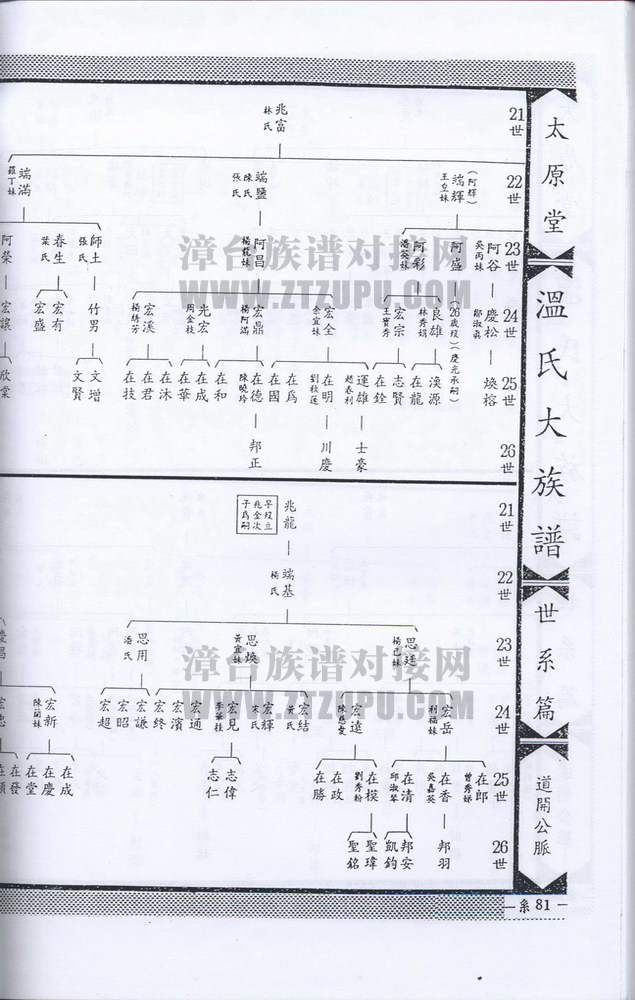 太原堂
溫氏大族譜
世系篇
道開公脈
系 81
21世
兆富
林氏
22世
(阿輝)
端輝
王立妹
端鹽
陳氏
張氏
端滿
羅丁妹
23世
阿谷
吳丙妹
阿盛
阿彩
潘葵妹
阿昌
楊龍妹
師土
張氏
春生
葉氏
阿榮
24世
慶松
鄒淑眞
(26歲歿)(慶光承嗣)
良雄
林秀娟
宏宗
王寶秀
宏全
余宜妹
宏鼎
楊阿滿
光宏
周金枝
宏溪
楊緣芳
竹男
宏有
宏盛
宏讓
25世
煥榕
渼源
在龍
志賢
在銓
運雄
趙春利
在明
劉秋蓮
在爲
在國
在德
陳曉玲
在和
在成
在華
在沐
在君
在技
文增
文賢
欣棠
26世
士豪
川慶
邦正
21世
兆龍
早歿立
兆金次
子爲嗣
22世
端基
楊氏
23世
思廷
楊己妹
思煥
黃宜妹
思用
潘氏
慶昌
24世
宏岳
利福妹
宏遠
陳慈愛
宏結
黃氏
宏輝
宋氏
宏見
李華桂
宏通
宏濱
宏終
宏謙
宏昭
宏超
宏新
陳蘭妹
宏忠
25世
在郎
曾秀娣
在香
吳嘉英
在清
邱淑琴
在模
劉秀粉
在政
在勝
志偉
志仁
在成
在慶
在堂
在發
在順
26世
邦羽
邦安
凱鈞
聖瑋
聖銘
漳台族谱对接网
WWW.ZTZUPU.COM
漳台族谱对接网
WWW.ZTZUPU.COM